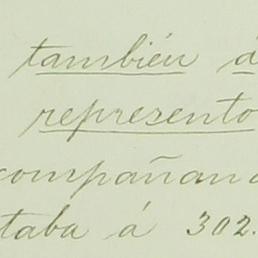 también á
representó
compañand
taba á 302.